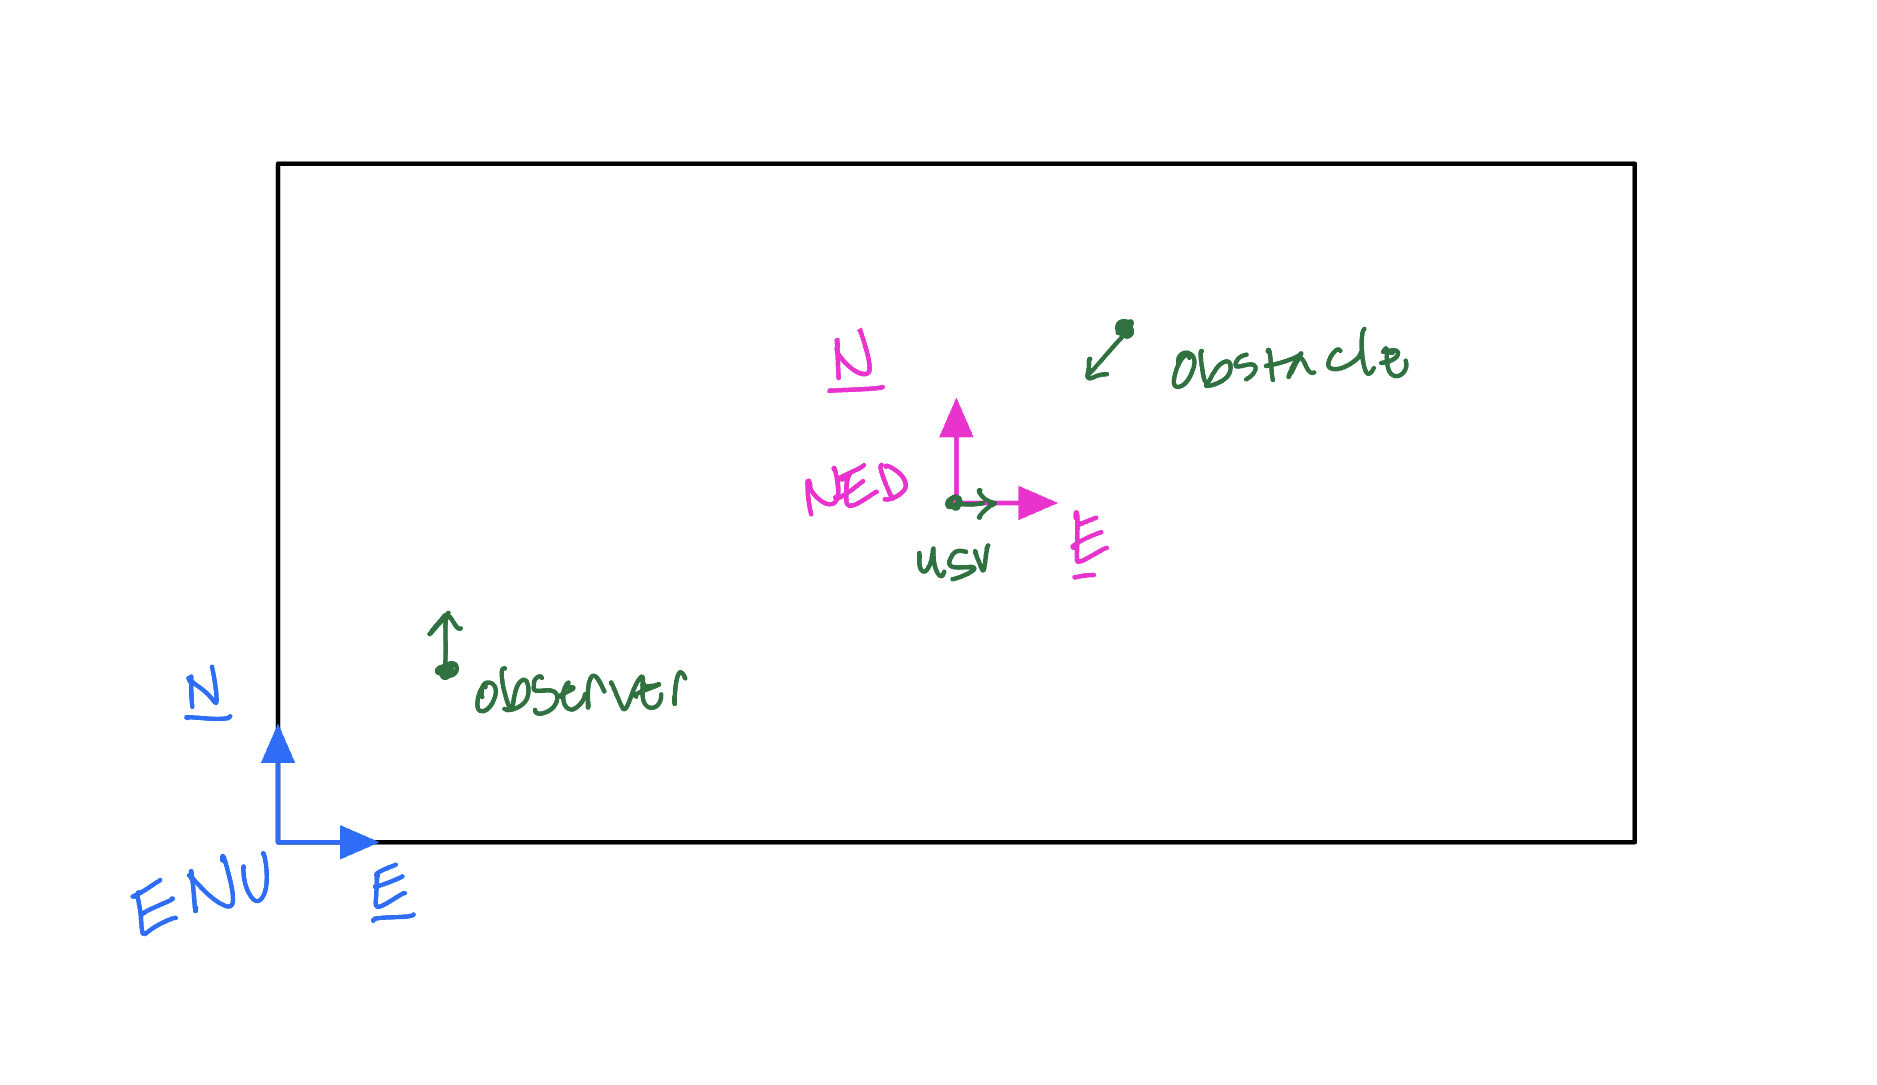 N
obstacle
NED
E
usv
observer
N
ENU
E